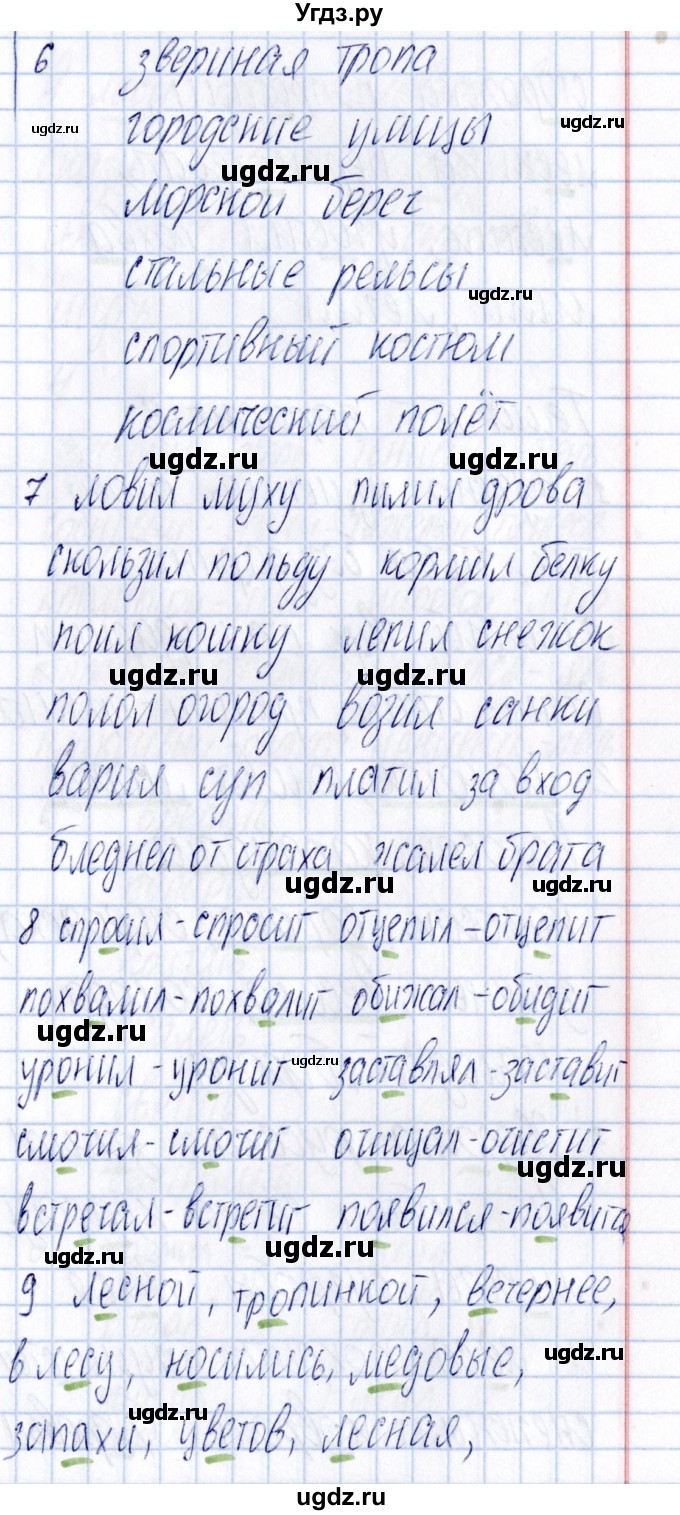 Угдз.ру
6 звериная тропа
ugdz.ru
городские улицы
ugdz.ru
ugdz.ru
морской берег
стальные рельсы
ugdz.ru
спортивный костюм
космический полёт
ugdz.ru ugdz.ru
7 ловил муху пилил дрова
скользил по льду кормил белку
поил кошку лепил снежок
ugdz.ru ugdz.ru
полол огород возил санки
варил суп платил за вход
бледнел от страха жалел брата
ugdz.ru ugdz.ru
8 спросил - спросит отцепил - отцепит
похвалил - похвалит обижал - обидит
ugdz.ru
уронил - уронит заставлял - заставит
ugdz.ru
смочил - смочит очищал - очистит
ugdz.ru
встречал - встретит появился - появится
ugdz.ru ugdz.ru
9 Лесной, тропинкой, вечернее,
ugdz.ru
в лесу, носились, медовые,
ugdz.ru
запахи, цветов, лесная,
ugdz.ru